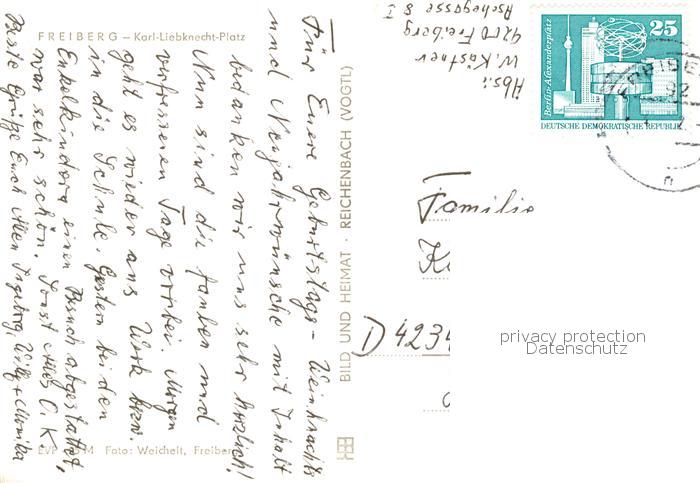 FREIBERG – Karl-Liebknecht-Platz
Für Eure Geburtstags- Weihnachts
und Neujahrwünsche mit Inhalt
bedanken wir uns sehr herzlich!
Nun sind die faulen und
verfressenen Tage vorbei. Morgen
geht es wieder ans Werk bzw.
in die Schule. Gestern bei den
Enkelkindern einen Besuch abgestattet,
war sehr schön. Sonst alles O.K.
Beste Grüße Euch allen Ingeborg, Willy + Monika
EVP M Foto: Weichelt, Freiberg
BILD UND HEIMAT · REICHENBACH (VOGTL)
Abs.:
W. Kästner
9200 Freiberg
Aschegasse 8 I
25
Berlin-Alexanderplatz
DEUTSCHE DEMOKRATISCHE REPUBLIK
FREIBE
92
Familie
K
D 4234
privacy protection
Datenschutz